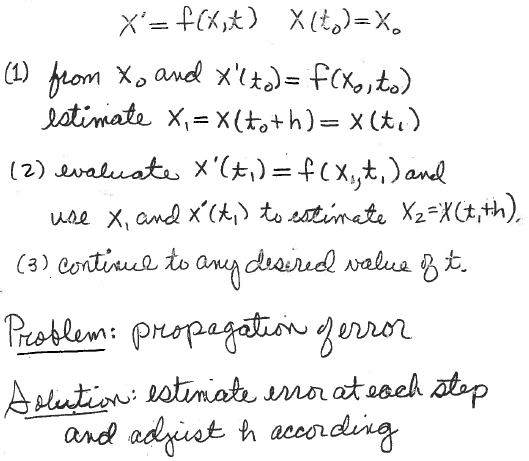 X' = f(x,t)   X(t₀)=X₀
(1) from X₀ and X'(t₀)= f(X₀,t₀)
estimate X₁ = X(t₀+h) = X(t₁)
(2) evaluate X'(t₁) = f(X₁,t₁) and
use X₁ and X'(t₁) to estimate X₂=X(t₁+h).
(3) continue to any desired value of t.
Problem: propagation of error
Solution: estimate error at each step
and adjust h according